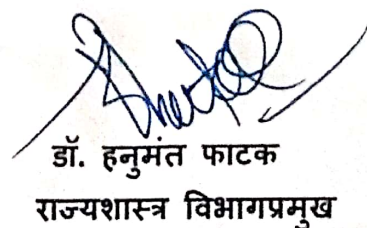 डॉ. हनुमंत फाटक
राज्यशास्त्र विभागप्रमुख